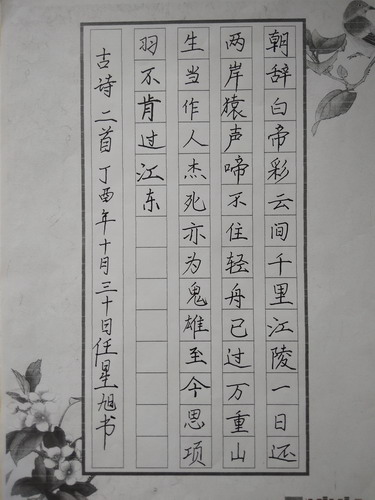 朝辞白帝彩云间千里江陵一日还
两岸猿声啼不住轻舟已过万重山
生当作人杰死亦为鬼雄至今思项
羽不肯过江东
古诗二首丁酉年十月三十日任星旭书